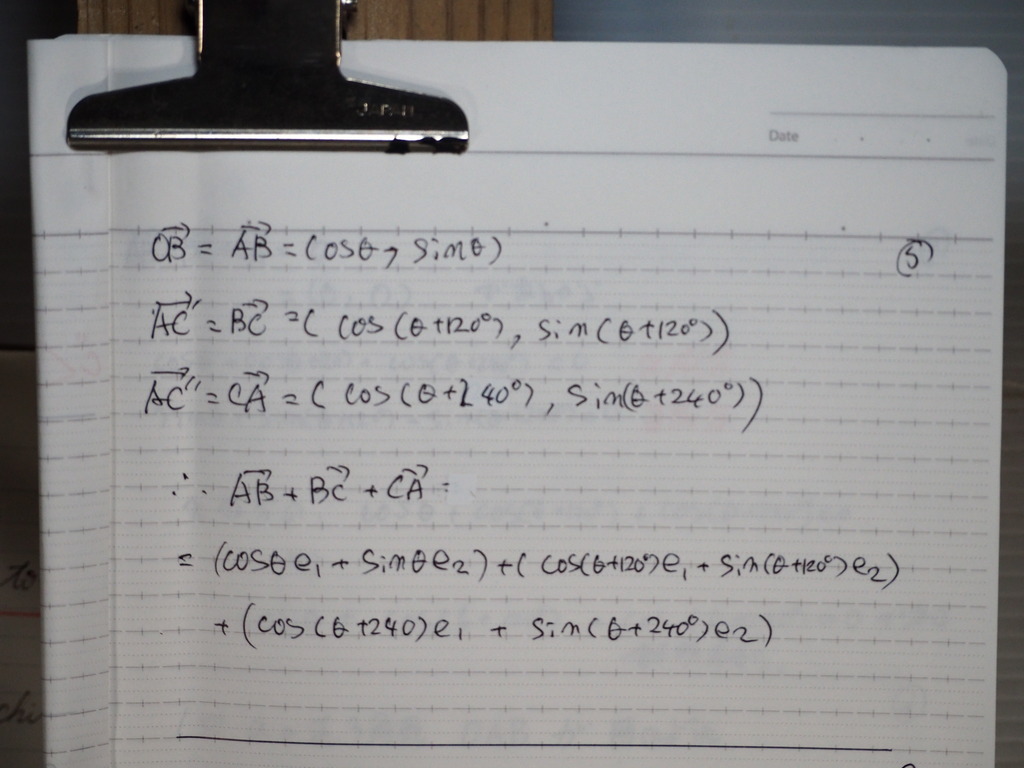 JAPAN
Date
OB = AB = (cosθ, sinθ) (5)
AC' = BC = ( cos(θ+120°), sin(θ+120°))
AC'' = CA = ( cos(θ+240°), sin(θ+240°))
∴ AB + BC + CA =
= (cosθe₁ + sinθe₂) + ( cos(θ+120°)e₁ + sin(θ+120°)e₂)
+ (cos(θ+240)e₁ + sin(θ+240°)e₂)
to
chi